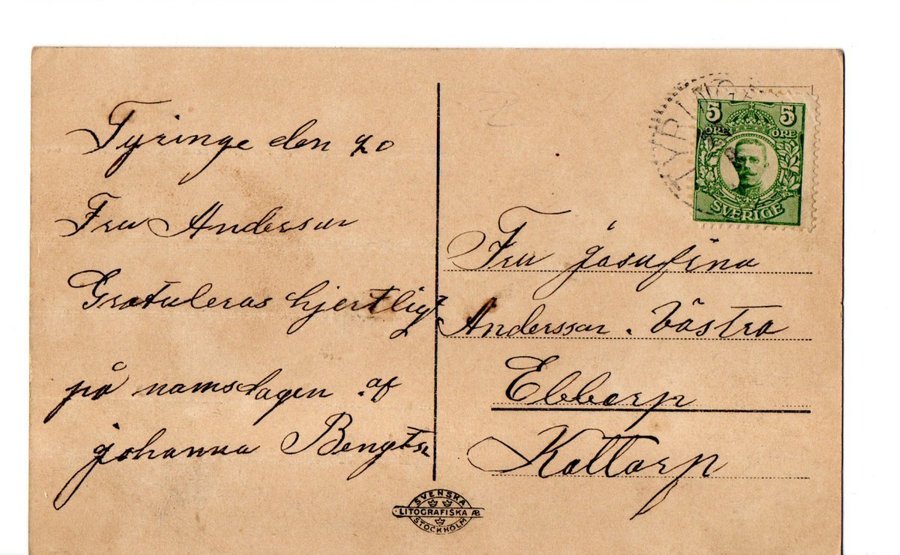 Tyringe den 20
Fru Andersson
Gratuleras hjertligt
på namsdagen af
johanna Bengts
TYRINGE
5 5
ÖRE ÖRE
SVERIGE
Fru josufina
Andersson. Västra
Ebbarp
Kattarp
SVENSKA
LITOGRAFISKA AB
STOCKHOLM